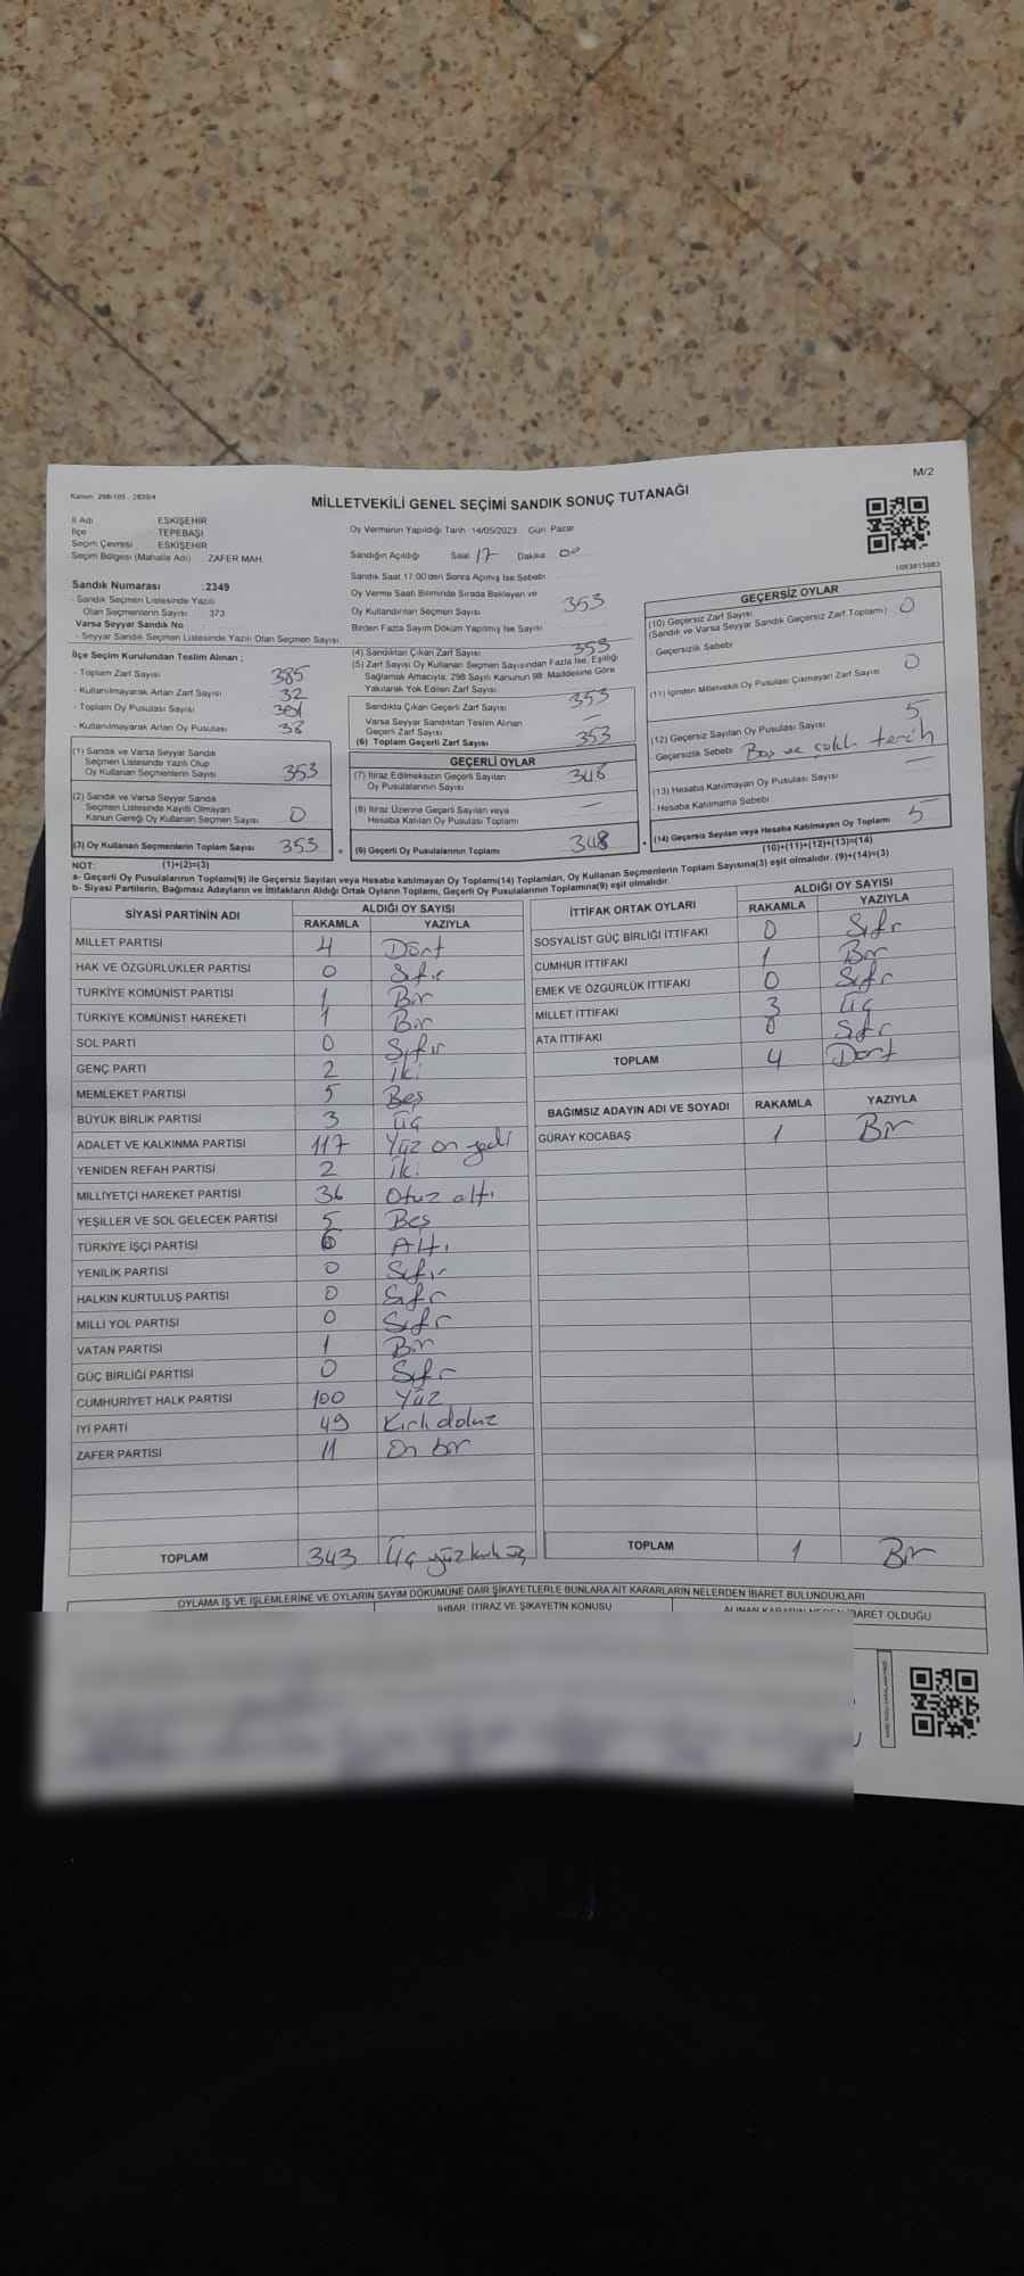 M/2
Kanun: 298/105 - 2839/4
MİLLETVEKİLİ GENEL SEÇİMİ SANDIK SONUÇ TUTANAĞI
İl Adı ESKİŞEHİR
İlçe TEPEBAŞI
Seçim Çevresi ESKİŞEHİR
Seçim Bölgesi (Mahalle Adı) ZAFER MAH.
Oy Vermenin Yapıldığı Tarih 14/05/2023 Gün Pazar
Sandığın Açıldığı Saat 17 Dakika 00
Sandık Saat 17:00'den Sonra Açılmış İse Sebebi
Oy Verme Saati Bitiminde Sırada Bekleyen ve
Oy Kullandırılan Seçmen Sayısı 353
Birden Fazla Sayım Döküm Yapılmış İse Sayısı
Sandık Numarası :2349
- Sandık Seçmen Listesinde Yazılı
Olan Seçmenlerin Sayısı 373
Varsa Seyyar Sandık No
- Seyyar Sandık Seçmen Listesinde Yazılı Olan Seçmen Sayısı
İlçe Seçim Kurulundan Teslim Alınan ;
- Toplam Zarf Sayısı 385
- Kullanılmayarak Artan Zarf Sayısı 32
- Toplam Oy Pusulası Sayısı
- Kullanılmayarak Artan Oy Pusulası 38
(1) Sandık ve Varsa Seyyar Sandık
Seçmen Listesinde Yazılı Olup
Oy Kullanan Seçmenlerin Sayısı 353
(2) Sandık ve Varsa Seyyar Sandık
Seçmen Listesinde Kayıtlı Olmayan
Kanun Gereği Oy Kullanan Seçmen Sayısı 0
(3) Oy Kullanan Seçmenlerin Toplam Sayısı 353
(1)+(2)=(3)
(4) Sandıktan Çıkan Zarf Sayısı 353
(5) Zarf Sayısı Oy Kullanan Seçmen Sayısından Fazla İse, Eşitliği
Sağlamak Amacıyla, 298 Sayılı Kanunun 98. Maddesine Göre
Yakılarak Yok Edilen Zarf Sayısı
Sandıkta Çıkan Geçerli Zarf Sayısı 353
Varsa Seyyar Sandıktan Teslim Alınan
Geçerli Zarf Sayısı —
(6) Toplam Geçerli Zarf Sayısı 353
GEÇERLİ OYLAR
(7) İtiraz Edilmeksizin Geçerli Sayılan
Oy Pusulalarının Sayısı 348
(8) İtiraz Üzerine Geçerli Sayılan veya
Hesaba Katılan Oy Pusulası Toplamı —
(9) Geçerli Oy Pusulalarının Toplamı 348
1093815083
GEÇERSİZ OYLAR
(10) Geçersiz Zarf Sayısı 0
(Sandık ve Varsa Seyyar Sandık Geçersiz Zarf Toplamı)
Geçersizlik Sebebi
(11) İçinden Milletvekili Oy Pusulası Çıkmayan Zarf Sayısı 0
(12) Geçersiz Sayılan Oy Pusulası Sayısı 5
Geçersizlik Sebebi Boş ve çoklu tercih
(13) Hesaba Katılmayan Oy Pusulası Sayısı —
Hesaba Katılmama Sebebi
(14) Geçersiz Sayılan veya Hesaba Katılmayan Oy Toplamı 5
(10)+(11)+(12)+(13)=(14)
NOT:
a- Geçerli Oy Pusulalarının Toplamı(9) ile Geçersiz Sayılan veya Hesaba katılmayan Oy Toplamı(14) Toplamları, Oy Kullanan Seçmenlerin Toplam Sayısına(3) eşit olmalıdır. (9)+(14)=(3)
b- Siyasi Partilerin, Bağımsız Adayların ve İttifakların Aldığı Ortak Oyların Toplamı, Geçerli Oy Pusulalarının Toplamına(9) eşit olmalıdır.
SİYASİ PARTİNİN ADI ALDIĞI OY SAYISI
RAKAMLA YAZIYLA
MİLLET PARTİSİ 4 Dört
HAK VE ÖZGÜRLÜKLER PARTİSİ 0 Sıfır
TÜRKİYE KOMÜNİST PARTİSİ 1 Bir
TÜRKİYE KOMÜNİST HAREKETİ 1 Bir
SOL PARTİ 0 Sıfır
GENÇ PARTİ 2 İki
MEMLEKET PARTİSİ 5 Beş
BÜYÜK BİRLİK PARTİSİ 3 Üç
ADALET VE KALKINMA PARTİSİ 117 Yüz on yedi
YENİDEN REFAH PARTİSİ 2 İki
MİLLİYETÇİ HAREKET PARTİSİ 36 Otuz altı
YEŞİLLER VE SOL GELECEK PARTİSİ 5 Beş
TÜRKİYE İŞÇİ PARTİSİ 6 Altı
YENİLİK PARTİSİ 0 Sıfır
HALKIN KURTULUŞ PARTİSİ 0 Sıfır
MİLLİ YOL PARTİSİ 0 Sıfır
VATAN PARTİSİ 1 Bir
GÜÇ BİRLİĞİ PARTİSİ 0 Sıfır
CUMHURİYET HALK PARTİSİ 100 Yüz
İYİ PARTİ 49 Kırkdokuz
ZAFER PARTİSİ 11 On bir
TOPLAM 343 Üç yüz kırk üç
İTTİFAK ORTAK OYLARI ALDIĞI OY SAYISI
RAKAMLA YAZIYLA
SOSYALİST GÜÇ BİRLİĞİ İTTİFAKI 0 Sıfır
CUMHUR İTTİFAKI 1 Bir
EMEK VE ÖZGÜRLÜK İTTİFAKI 0 Sıfır
MİLLET İTTİFAKI 3 Üç
ATA İTTİFAKI 0 Sıfır
TOPLAM 4 Dört
BAĞIMSIZ ADAYIN ADI VE SOYADI RAKAMLA YAZIYLA
GÜRAY KOCABAŞ 1 Bir
TOPLAM 1 Bir
OYLAMA İŞ VE İŞLEMLERİNE VE OYLARIN SAYIM DÖKÜMÜNE DAİR ŞİKAYETLERLE BUNLARA AİT KARARLARIN NELERDEN İBARET BULUNDUKLARI
İHBAR, İTİRAZ VE ŞİKAYETİN KONUSU
ALINAN KARARIN NEDEN İBARET OLDUĞU